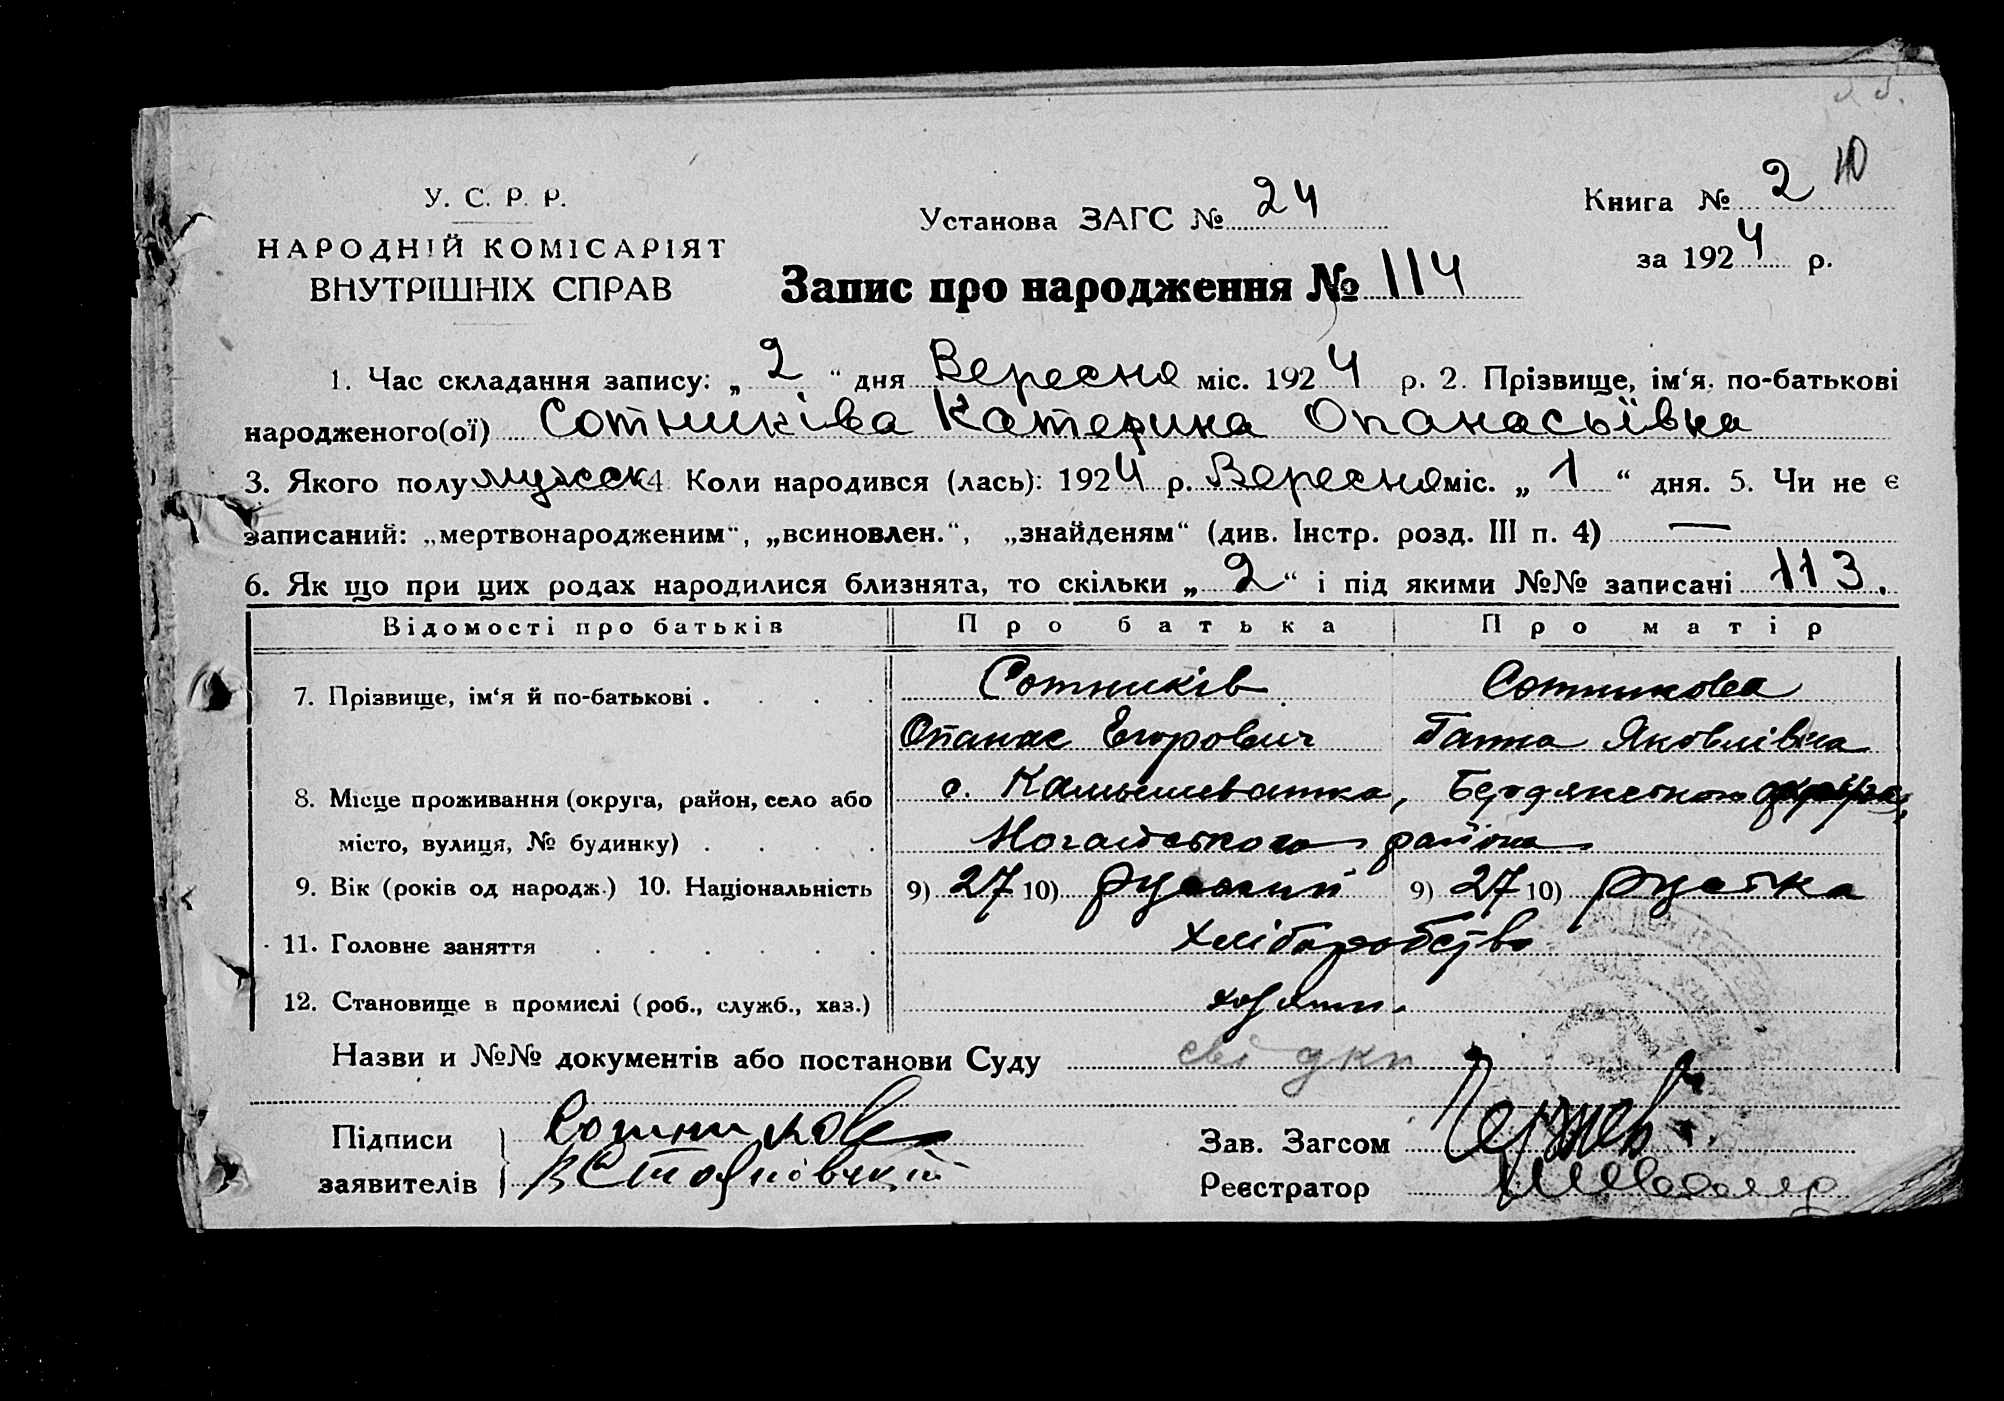 У. С. Р. Р.
НАРОДНІЙ КОМІСАРІЯТ
ВНУТРІШНІХ СПРАВ
Установа ЗАГС № 24
Книга № 2 10
за 1924 р.
Запис про народження № 114
1. Час складання запису: „ 2 “ дня Вересня міс. 1924 р. 2. Прізвище, ім‘я, по-батькові
народженого(ої) Сотниківа Катерина Опанасьївна
3. Якого полу мужеск 4 Коли народився (лась): 1924 р. Вересня міс. „ 1 “ дня. 5. Чи не є
записаний: „мертвонародженим“, „всиновлен.“, „знайденям“ (див. Інстр. розд. III п. 4) —
6. Як що при цих родах народилися близнята, то скільки „ 2 “ і під якими №№ записані 113.
Відомості про батьків Про батька Про матір
7. Прізвище, ім‘я й по-батькові . . . . Сотників Сотникова
Опанас Егорович Ганна Яковлівна
8. Місце проживання (округа, район, село або с. Камышеватка, Бердянського округа,
місто, вулиця, № будинку) . . . . Ногайського района
9. Вік (років од народж.) 10. Національність 9) 27 10) русский 9) 27 10) русска
11. Головне заняття . . . . . . Хліборобство
12. Становище в промислі (роб., служб., хаз.)
Назви и №№ документів або постанови Суду
Підписи Сотников Зав. Загсом
заявителів В Стояновский Реєстратор